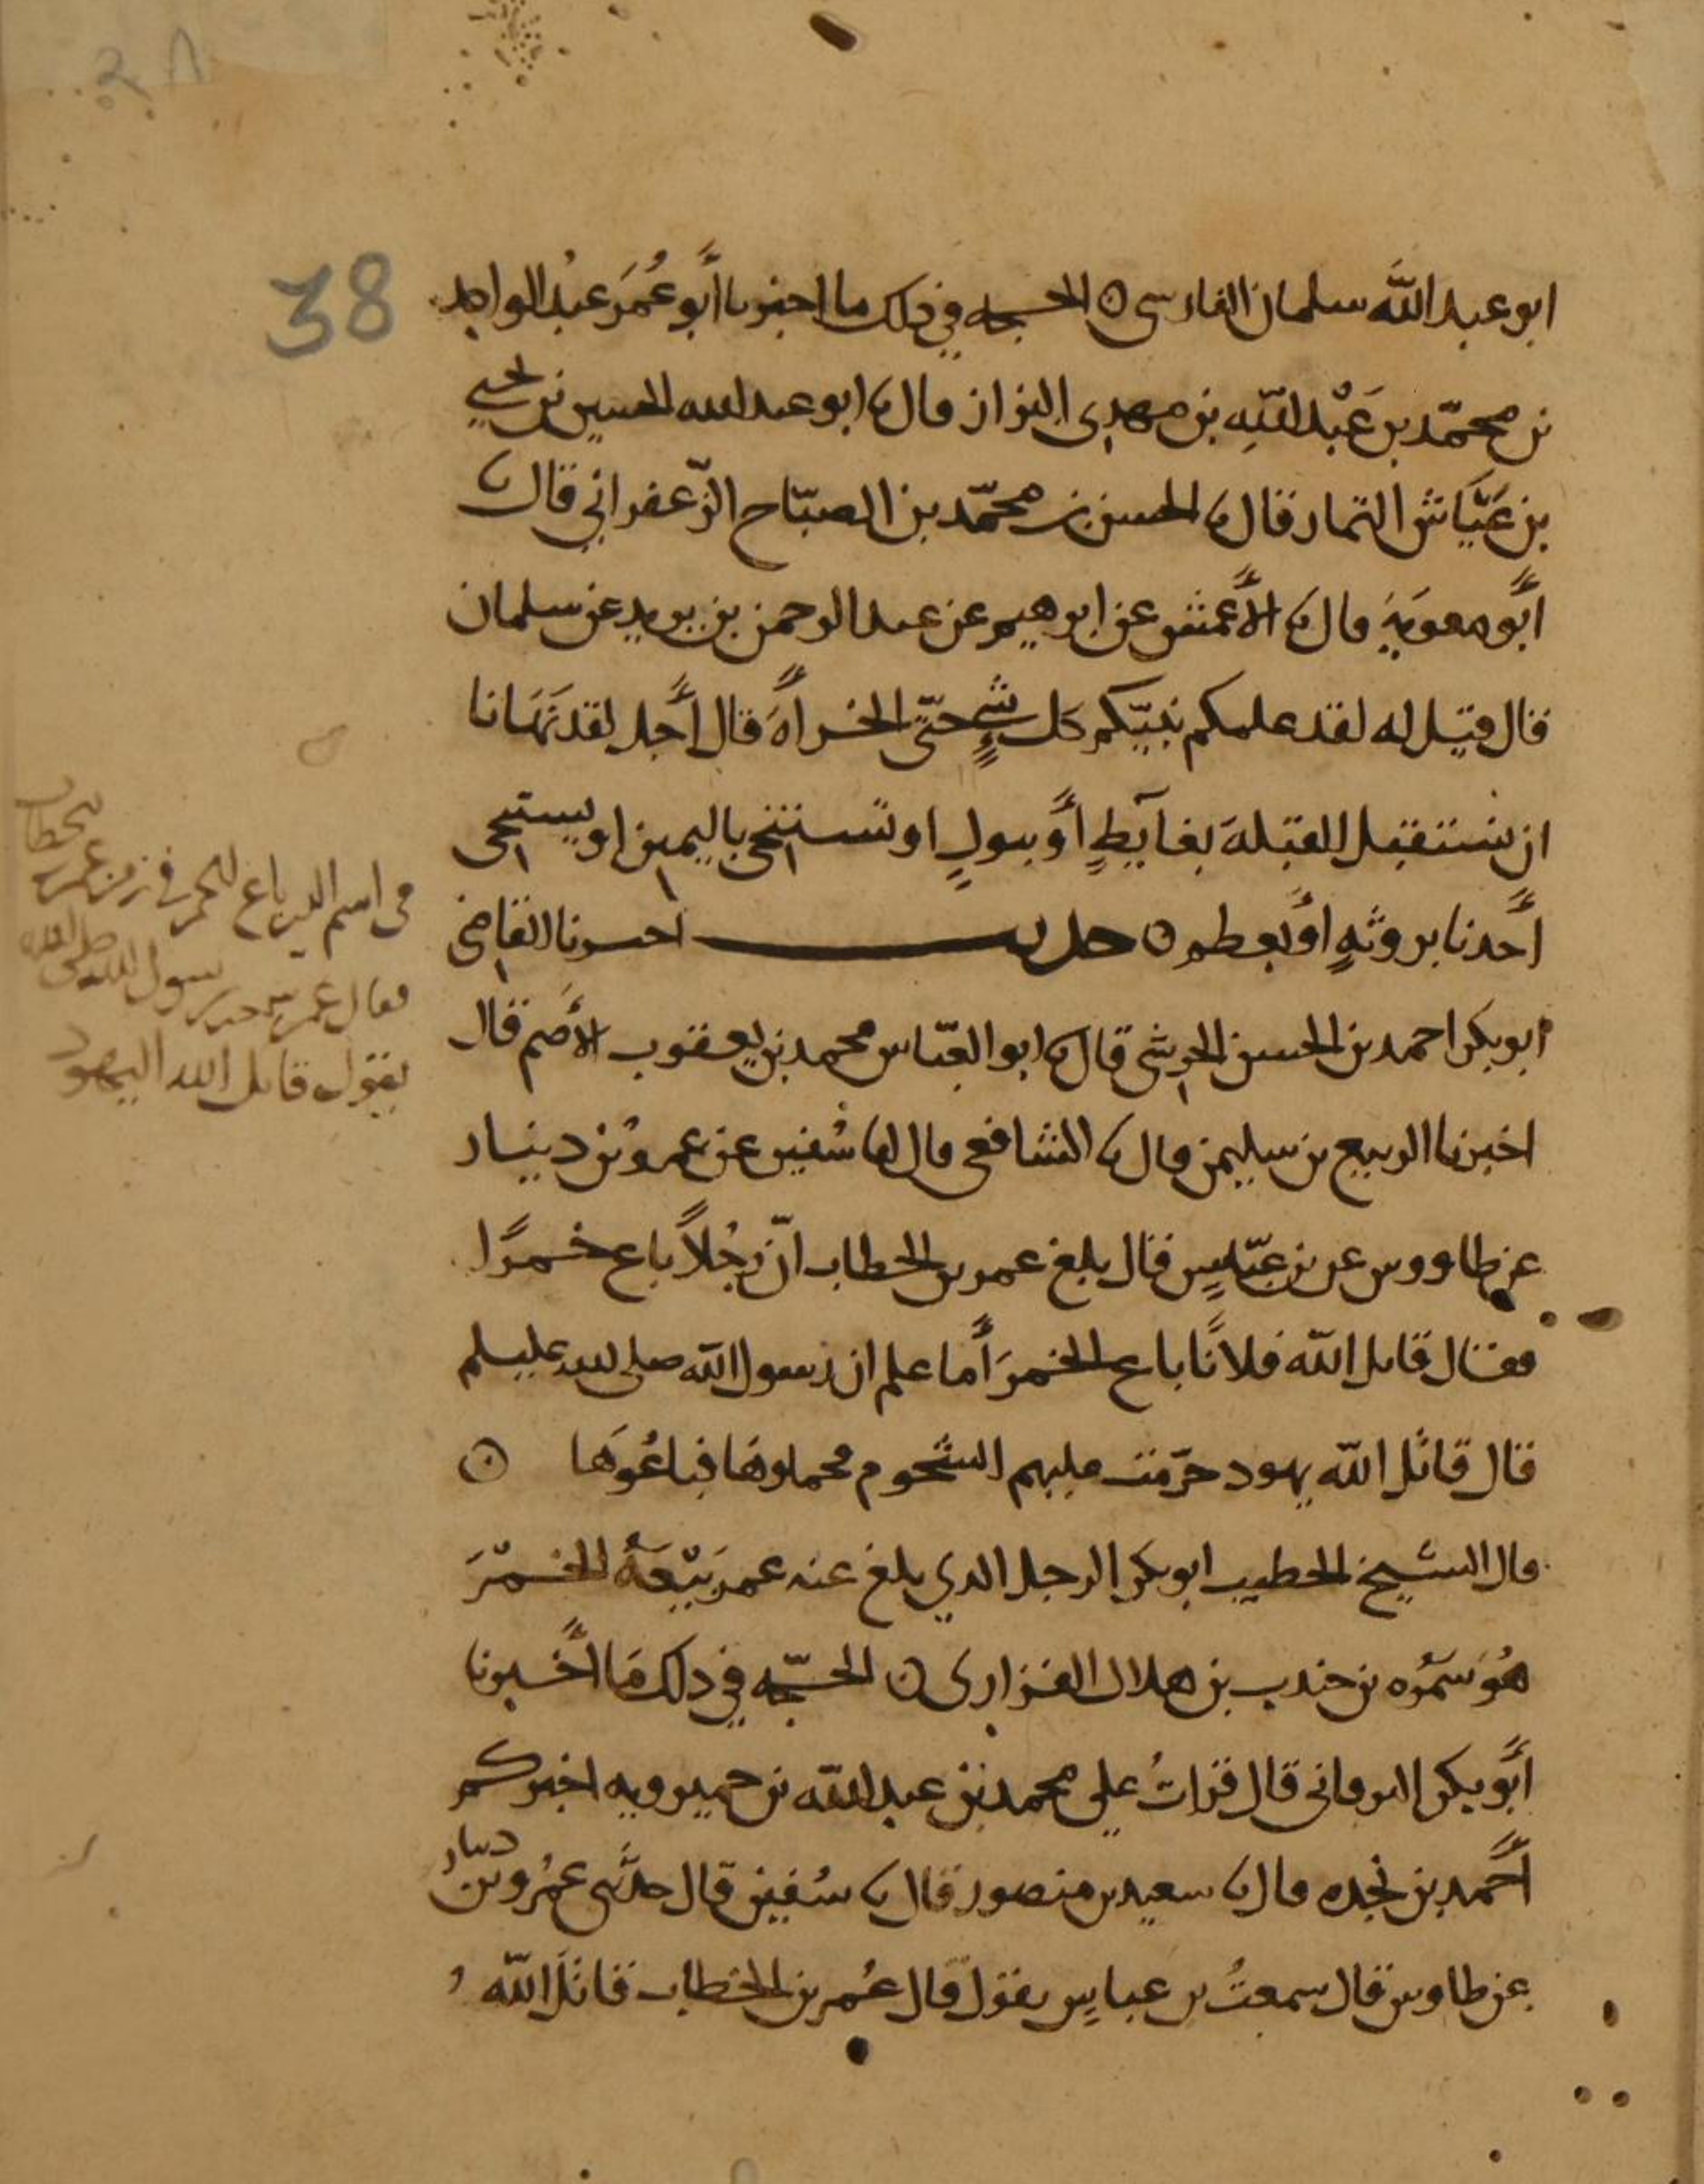 38
ابو عبد الله سلمان الفارسي ⊙ الحجه في ذلك ما اخبرنا أبو عُمَر عبْد الواحد
بن محمّد بن عَبْد اللهِ بن مهدي البزاز قال نا ابو عبد الله الحسين بن يحيي
بن عَيَّاش التمار قال نا الحسن بن محمّد بن الصبّاح الزّعفراني قال نا
أبو معوية قال نا الأعمش عن ابرهيم عن عبد الرحمن بن يزيد عن سلمان
قال قيل له لقد علمكم نبيّكم كل شيءٍ حتّى الخراأَة قال أجل لقد نَهَانا
ان نستقبل القبلة بغآيطٍ أو ببولٍ او نستنجى باليمين او يستنجى
أحدنا بروثةٍ أو بعظم ⊙ حديث اخبرنا القاضي
ابو بكر احمد بن الحسن الحرشي قال نا ابو العبّاس محمد بن يعقوب الأصم قال
اخبرنا الربيع بن سليمن قال نا الشافعي قال انا سُفين عن عمرو بن دينار
عن طاووس عن بن عبّاسٍ قال بلغ عمر بن الخطاب انّ رجُلاً باع خمرًا
فقال قاتل الله فلانًا باع الخمرَ أما علم ان رسول الله صلى الله عليه وسلم
قال قاتَل الله يهود حرّمت عليهم الشحوم فجملوهَا فباعُوهَا ⊙
قال الشيخ الخطيب ابو بكر الرجل الذي بلغ عنه عمرَ بَيْعَهُ الخمْرَ
هُو سَمُرَه بن جندب بن هلال الفزاري ⊙ الحجّه في ذلك مَا أخبرنا
أبو بكر البرقاني قال قرات على محمد بن عبد الله بن خميرويه اخبركم
أحمد بن نجده قال نا سعيد بن منصور قال نا سُفين قال حدثني عَمْرو بن دينار
عن طاوس قال سمعتُ بن عباسٍ يقول قال عُمر بن الخطاب قاتَل الله
في اسم الذي باع الخمر في زمن عمر بن الخطاب
فقال عمر سمعت رسول الله صلى الله
يقول قاتل الله اليهود